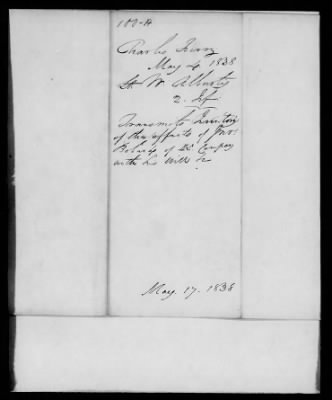 180-A
Charles Ferry
May 4. 1838
Lt W. Alburtis
2. Inf.
Transmits Inventory
of the effects of Priv.
of "D" Company
with his Will &c
May. 17. 1838